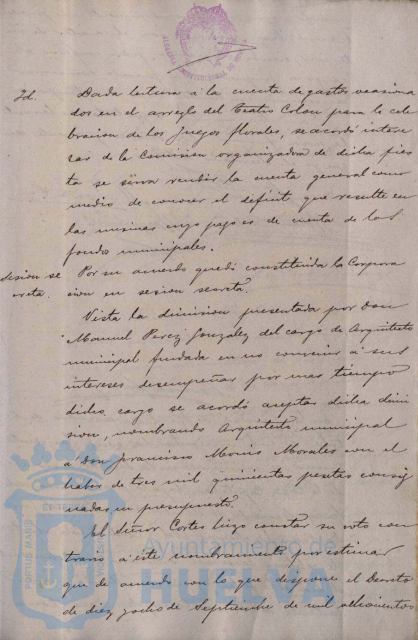 Id. Dada lectura á la cuenta de gastos ocasiona
dos en el arreglo del Teatro Colon para la cele
bracion de los Juegos florales, se acordó intere
sar de la Comision organizadora de dicha fies
ta se sirva rendir la cuenta general como
medio de conocer el déficit que resulte en
las mismas cuyo pago es de cuenta de los
fondos municipales.
Sesion se
creta.
Por su acuerdo quedó constituida la Corpora
cion en sesion secreta.
Vista la dimision presentada por Don
Manuel Perez Gonzalez del cargo de Arquitecto
municipal fundada en no convenir á sus
intereses desempeñar por mas tiempo
dicho cargo se acordó aceptar dicha dimi
sion, nombrando Arquitecto municipal
á Don Francisco Monis Morales con el
haber de tres mil quinientas pesetas consig
nadas en presupuesto.
El Señor Cortes hizo constar su voto con
trario á este nombramiento por estimar
que de acuerdo con lo que dispone el Decreto
de diez y ocho de Septiembre de mil ochocientos
Ayuntamiento de
HUELVA